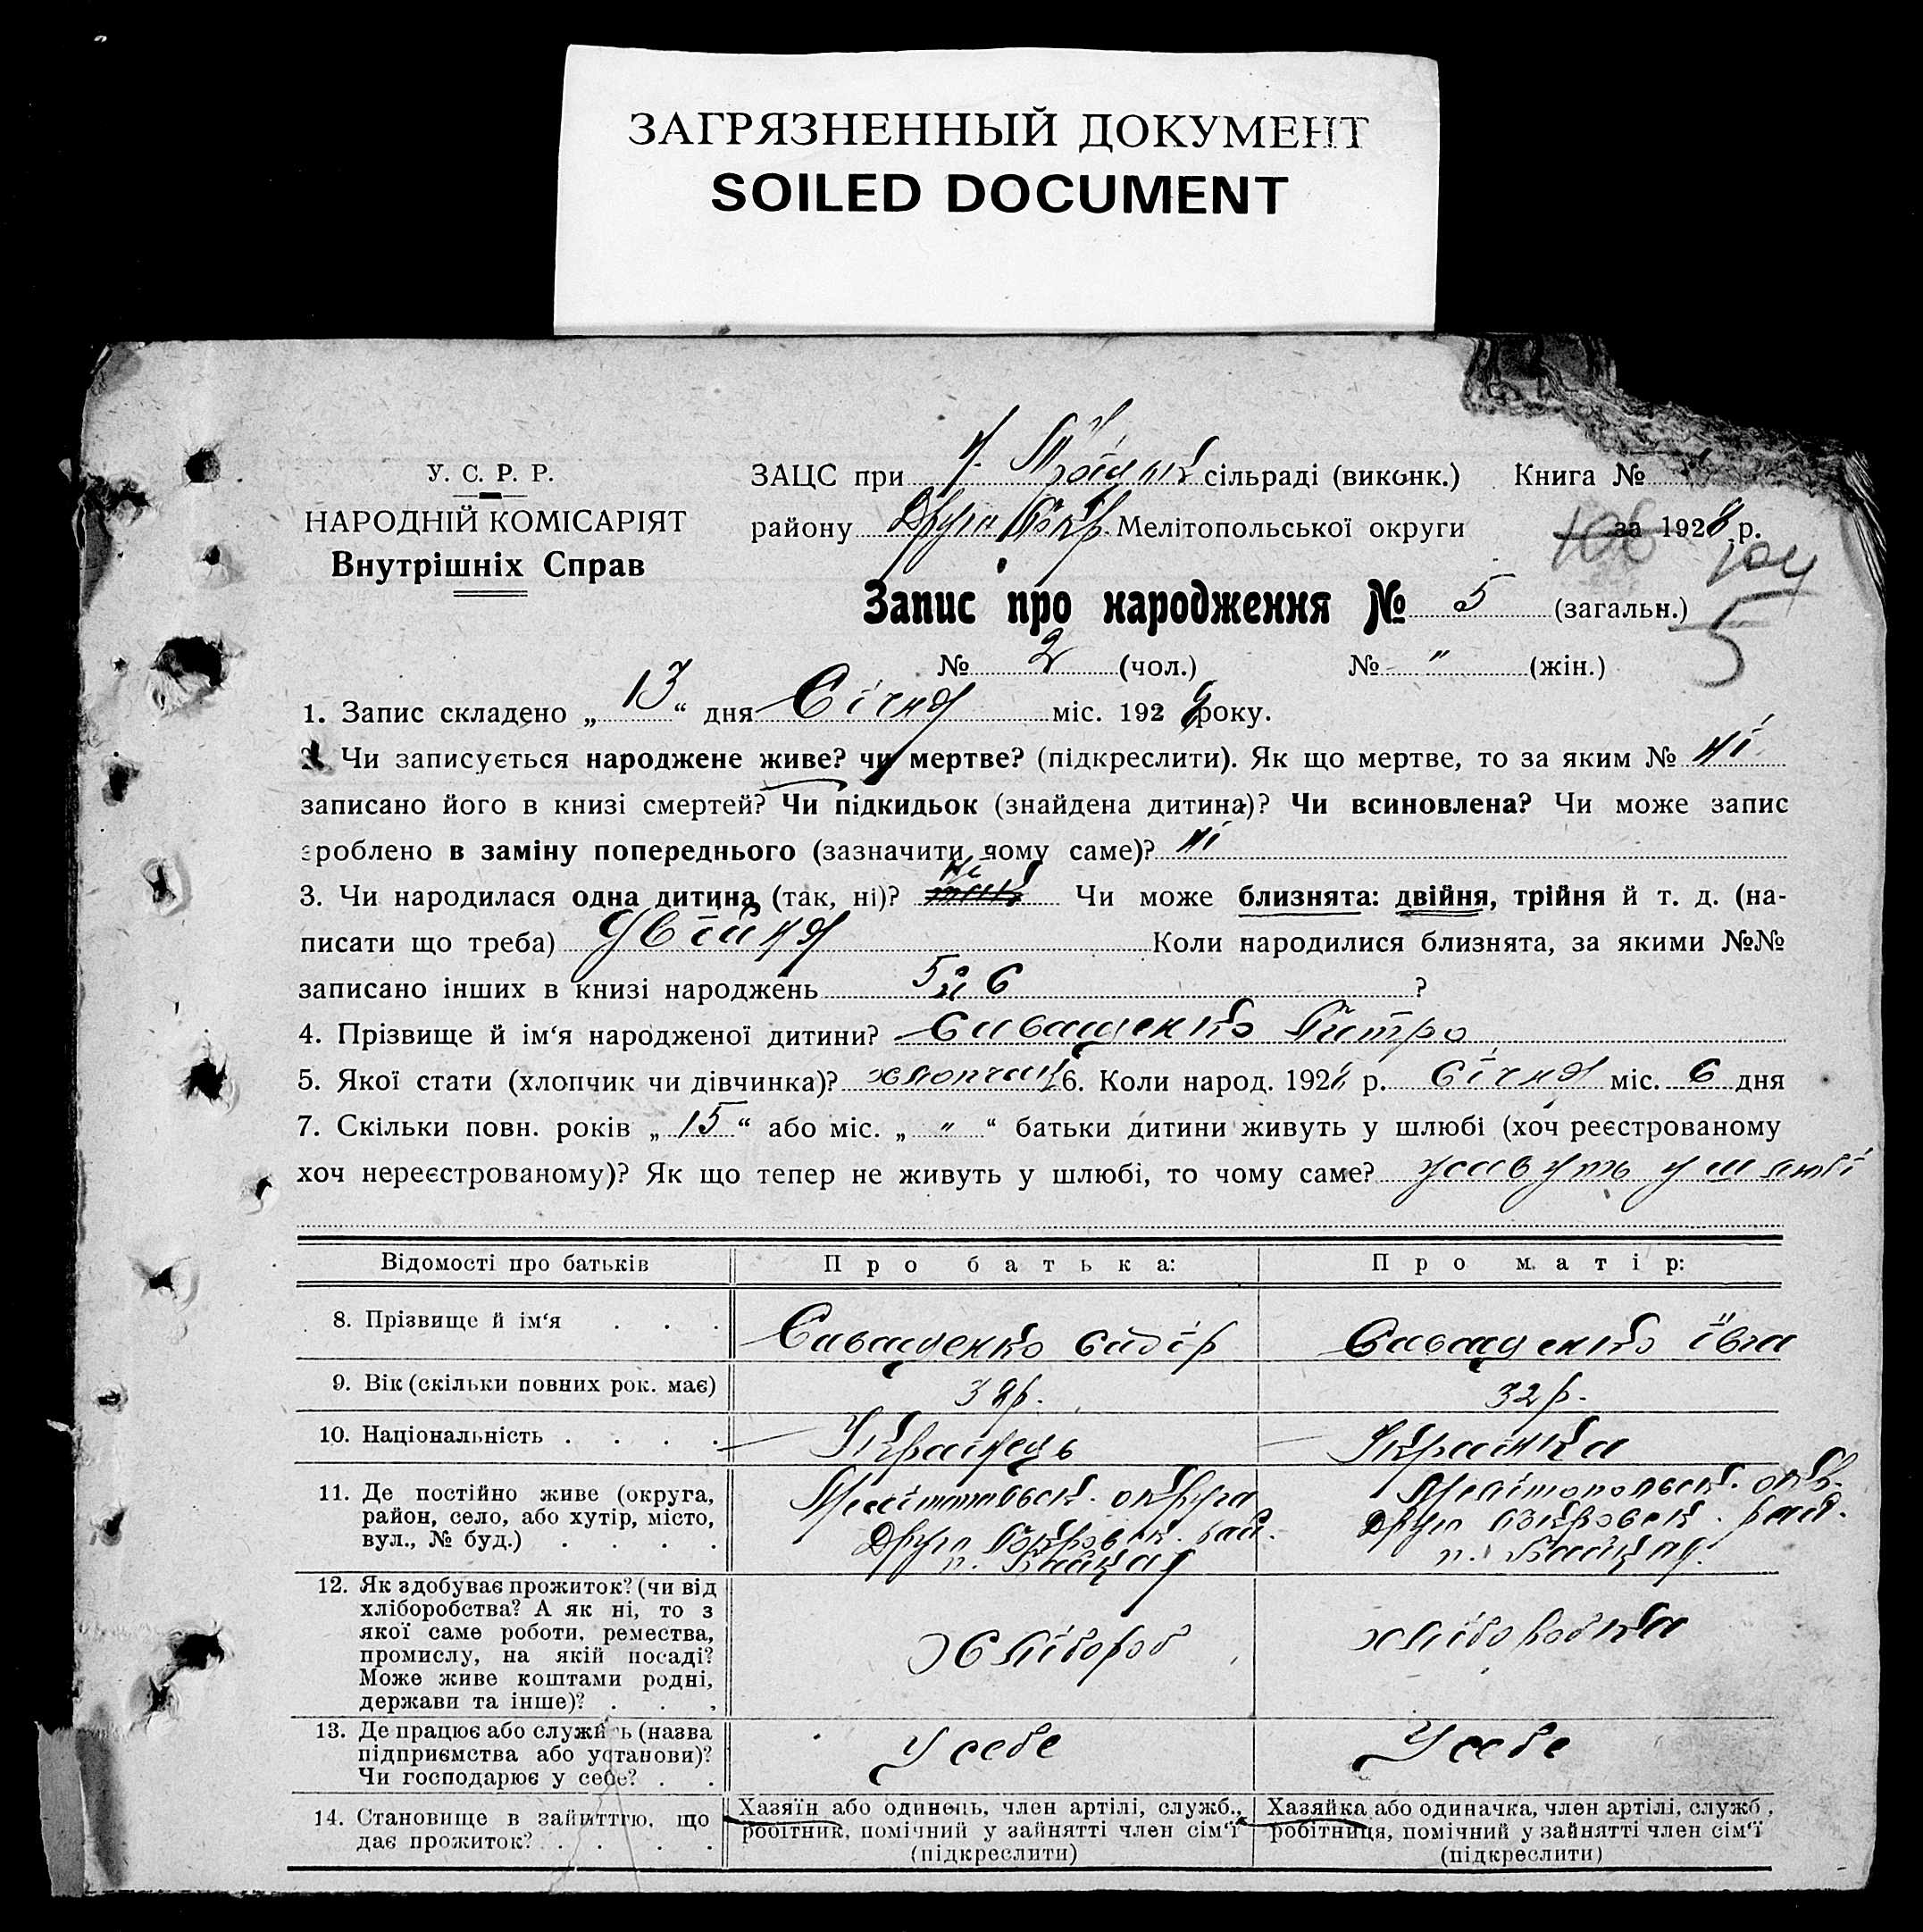 ЗАГРЯЗНЕННЫЙ ДОКУМЕНТ
SOILED DOCUMENT
У. С. Р. Р.
НАРОДНІЙ КОМІСАРІЯТ
Внутрішніх Справ
ЗАЦС при сільраді (виконк.) Книга №
району Друго Покр. Мелітопольської округи за 1928 р.
106 104
Запис про народження № 5 (загальн.) 5
№ 2 (чол.) № " (жін.)
1. Запис складено „ 13 “ дня Січня міс. 192 року.
2. Чи записується народжене живе? чи мертве? (підкреслити). Як що мертве, то за яким № ні
записано його в книзі смертей? Чи підкидьок (знайдена дитина)? Чи всиновлена? Чи може запис
зроблено в заміну попереднього (зазначити чому саме)? ні
3. Чи народилася одна дитина (так, ні)? ні Чи може близнята: двійня, трійня й т. д. (на-
писати що треба) двійня Коли народилися близнята, за якими №№
записано інших в книзі народжень 5 й 6 ?
4. Прізвище й ім‘я народженої дитини? Сиващенко Питро
5. Якої стати (хлопчик чи дівчинка)? хлопчик 6. Коли народ. 192 р. Січня міс. 6 дня
7. Скільки повн. років „ 15 “ або міс. „ " “ батьки дитини живуть у шлюбі (хоч реєстрованому
хоч нереєстрованому)? Як що тепер не живуть у шлюбі, то чому саме? живуть у шлюбі
Відомості про батьків Про батька: Про матір:
8. Прізвище й ім‘я . . . Сиващенко Сидір Сиващенко Ївга
9. Вік (скільки повних рок. має) 32 р.
10. Національність . . . . Українець Українка
11. Де постійно живе (округа,
район, село, або хутір, місто,
вул., № буд.) . . . .
Мелітопольськ. округа
Друго Покровськ. рай.
Мелітопольськ. окр.
Друго Покровськ. рай.
12. Як здобуває прожиток? (чи від
хліборобства? А як ні, то з
якої саме роботи, ремества,
промислу, на якій посаді?
Може живе коштами родні,
держави та інше)? . . .
Хлібороб хліборобка
13. Де працює або служить (назва
підприємства або установи)?
Чи господарює у себе? . .
У себе У себе
14. Становище в зайняттю, що
дає прожиток? . . . .
Хазяїн або одинець, член артілі, служб.,
робітник, помічний у зайнятті член сім‘ї
(підкреслити)
Хазяйка або одиначка, член артілі, служб.,
робітниця, помічний у зайнятті член сім‘ї
(підкреслити)